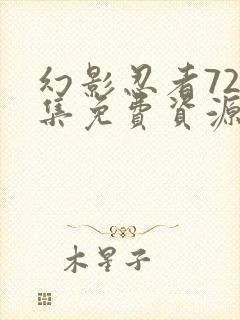 幻影忍者72
集免費資源
木星子